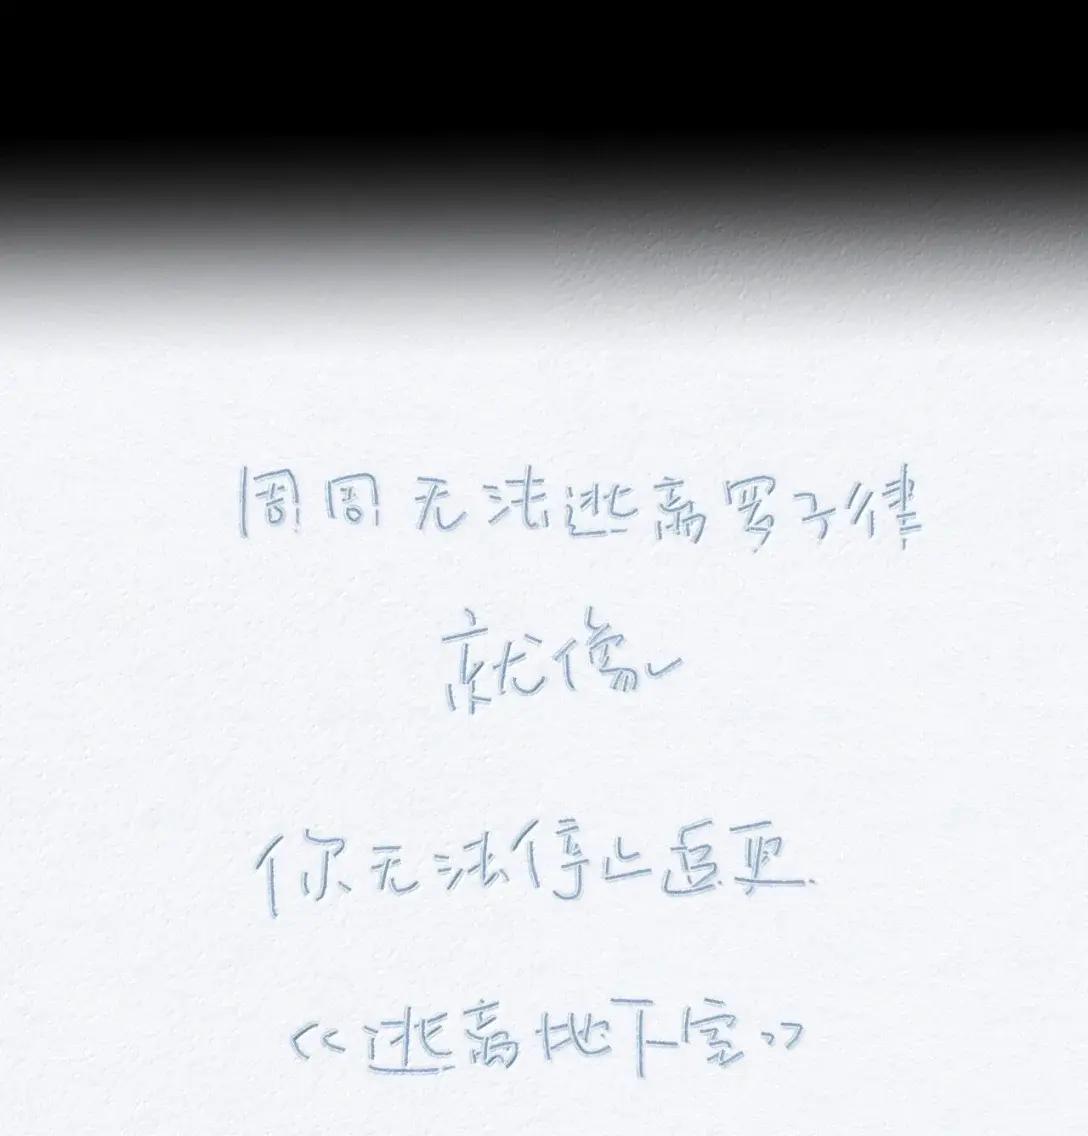 周周无法逃离罗子律
就像
你无法停止追更
《逃离地下室》